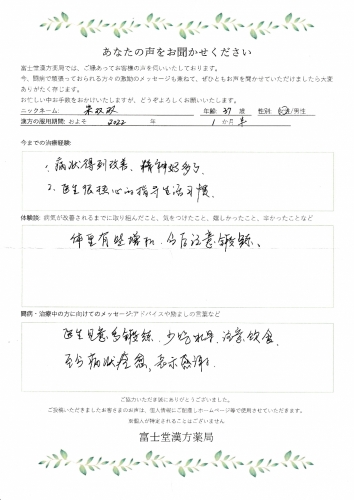 あなたの声をお聞かせください
富士堂漢方薬局では、ご縁あってお客様の声を伺いいたしております。
今、闘病で頑張っておられる方々の激励のメッセージも兼ねて、ぜひともお声を聞かせていただけましたら大変
ありがたく存じます。
お忙しい中お手数をおかけいたしますが、どうぞよろしくお願いいたします。
ニックネーム: 年齢: 37 歳 性別: 女性/男性
漢方の服用期間: およそ 2022 年 1 か月
今までの治療経験:
1、病状得到改善、精神好多了
2、医生很担心的指导生活习惯、
体験談: 病気が改善されるまでに取り組んだこと、気をつけたこと、嬉しかったこと、辛かったことなど
体重有些增加、今后注意锻炼、
闘病・治療中の方に向けてのメッセージ:アドバイスや励ましの言葉など
医生 锻炼、少吃 注意饮食、
至今病状痊愈、表示感谢!
ご協力いただき誠にありがとうございました。
ご投稿いただきましたお客さまのお声は、個人情報にご配慮しホームページ等で使用させていただきます。
※個人が特定されることはございません
富士堂漢方薬局